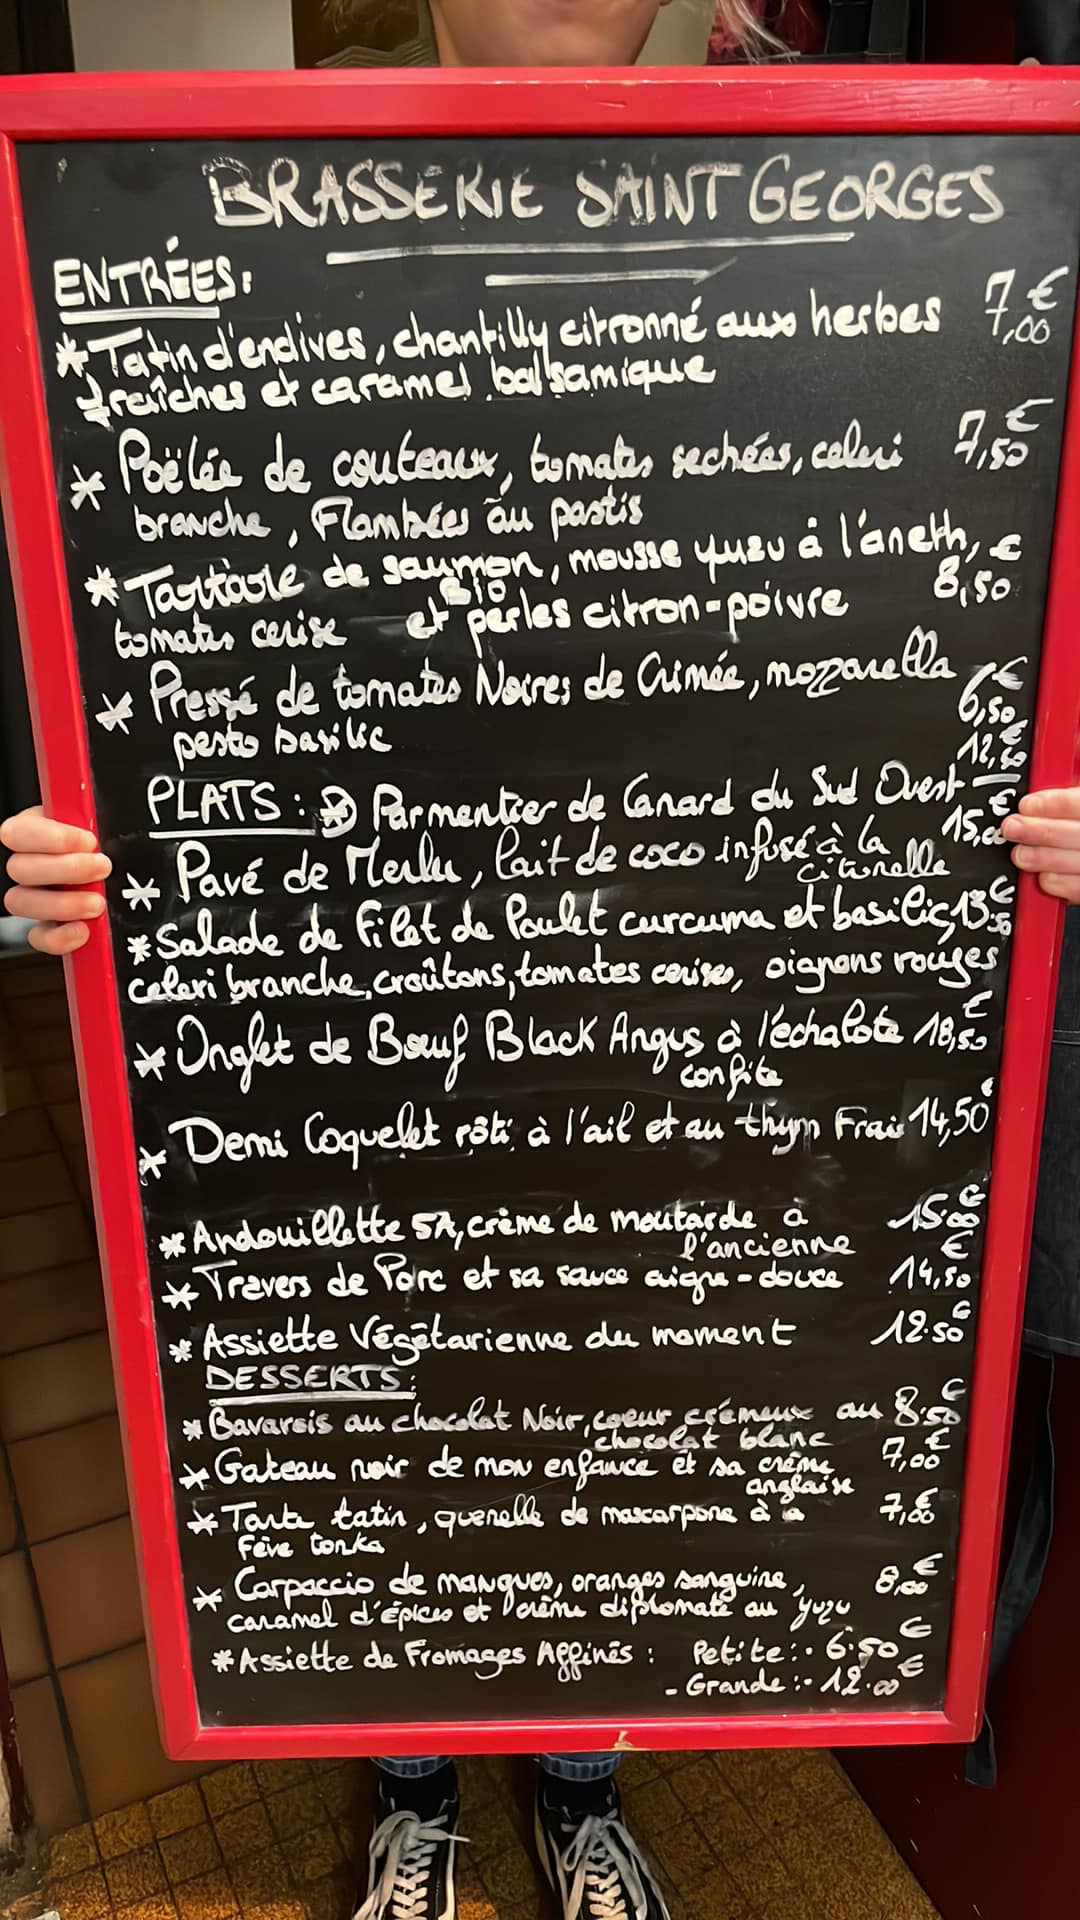 BRASSERIE SAINT GEORGES
ENTRÉES:
* Tatin d'endives, chantilly citronné aux herbes 7,00 €
fraîches et caramel balsamique
* Poëlée de couteaux, tomates sechées, celeri 7,50 €
branche, Flambées au pastis
* Tartare de saumon, mousse yuzu à l'aneth, 8,50 €
BIO
tomates cerise et perles citron-poivre
* Pressé de tomates Noires de Crimée, mozzarella 6,50 €
pesto basilic
PLATS: * Parmentier de Canard du Sud Ouest 12,50 €
* Pavé de Merlu, lait de coco infusé à la 15,00 €
citronelle
* Salade de Filet de Poulet curcuma et basilic, 13.50 €
celeri branche, croûtons, tomates cerises, oignons rouges
* Onglet de Bœuf Black Angus à l'échalote 18,50 €
confite
* Demi Coquelet rôti à l'ail et au thym Frais 14,50 €
* Andouillette 5A, crème de moutarde à 15.00 €
l'ancienne
* Travers de Porc et sa sauce aigre-douce 14,50 €
* Assiette Végétarienne du moment 12.50 €
DESSERTS:
* Bavarois au chocolat Noir, coeur crémeux au 8.50 €
chocolat blanc
* Gateau noir de mon enfance et sa crème 7,00 €
anglaise
* Tarte tatin, quenelle de mascarpone à la 7,00 €
Fève tonka
* Carpaccio de mangues, oranges sanguine, 8,00 €
caramel d'épices et crème diplomate au yuzu
* Assiette de Fromages Affinés : Petite : 6.50 €
- Grande : 12.00 €